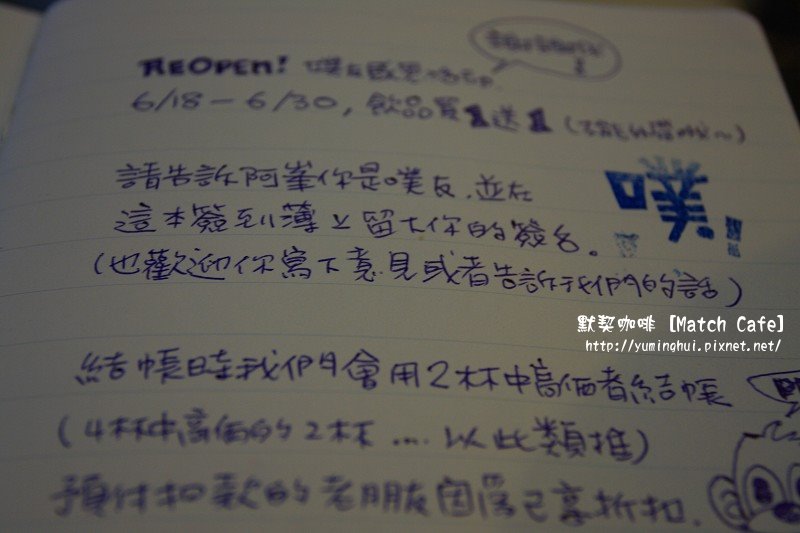 REOPEN! 噗友
6/18-6/30, 飲品買1送1 (
請告訴阿峯你是噗友,並在
這本簽到簿上留下你的簽名。
(也歡迎你寫下意見或者告訴我們的話)
噗
默契咖啡 [Match Cafe]
http://yuminghui.pixnet.net/
結帳時我們會用2杯中高価者結帳
(4杯中高価的2杯....以此類推)
預付扣款的老朋友因為已享折扣.